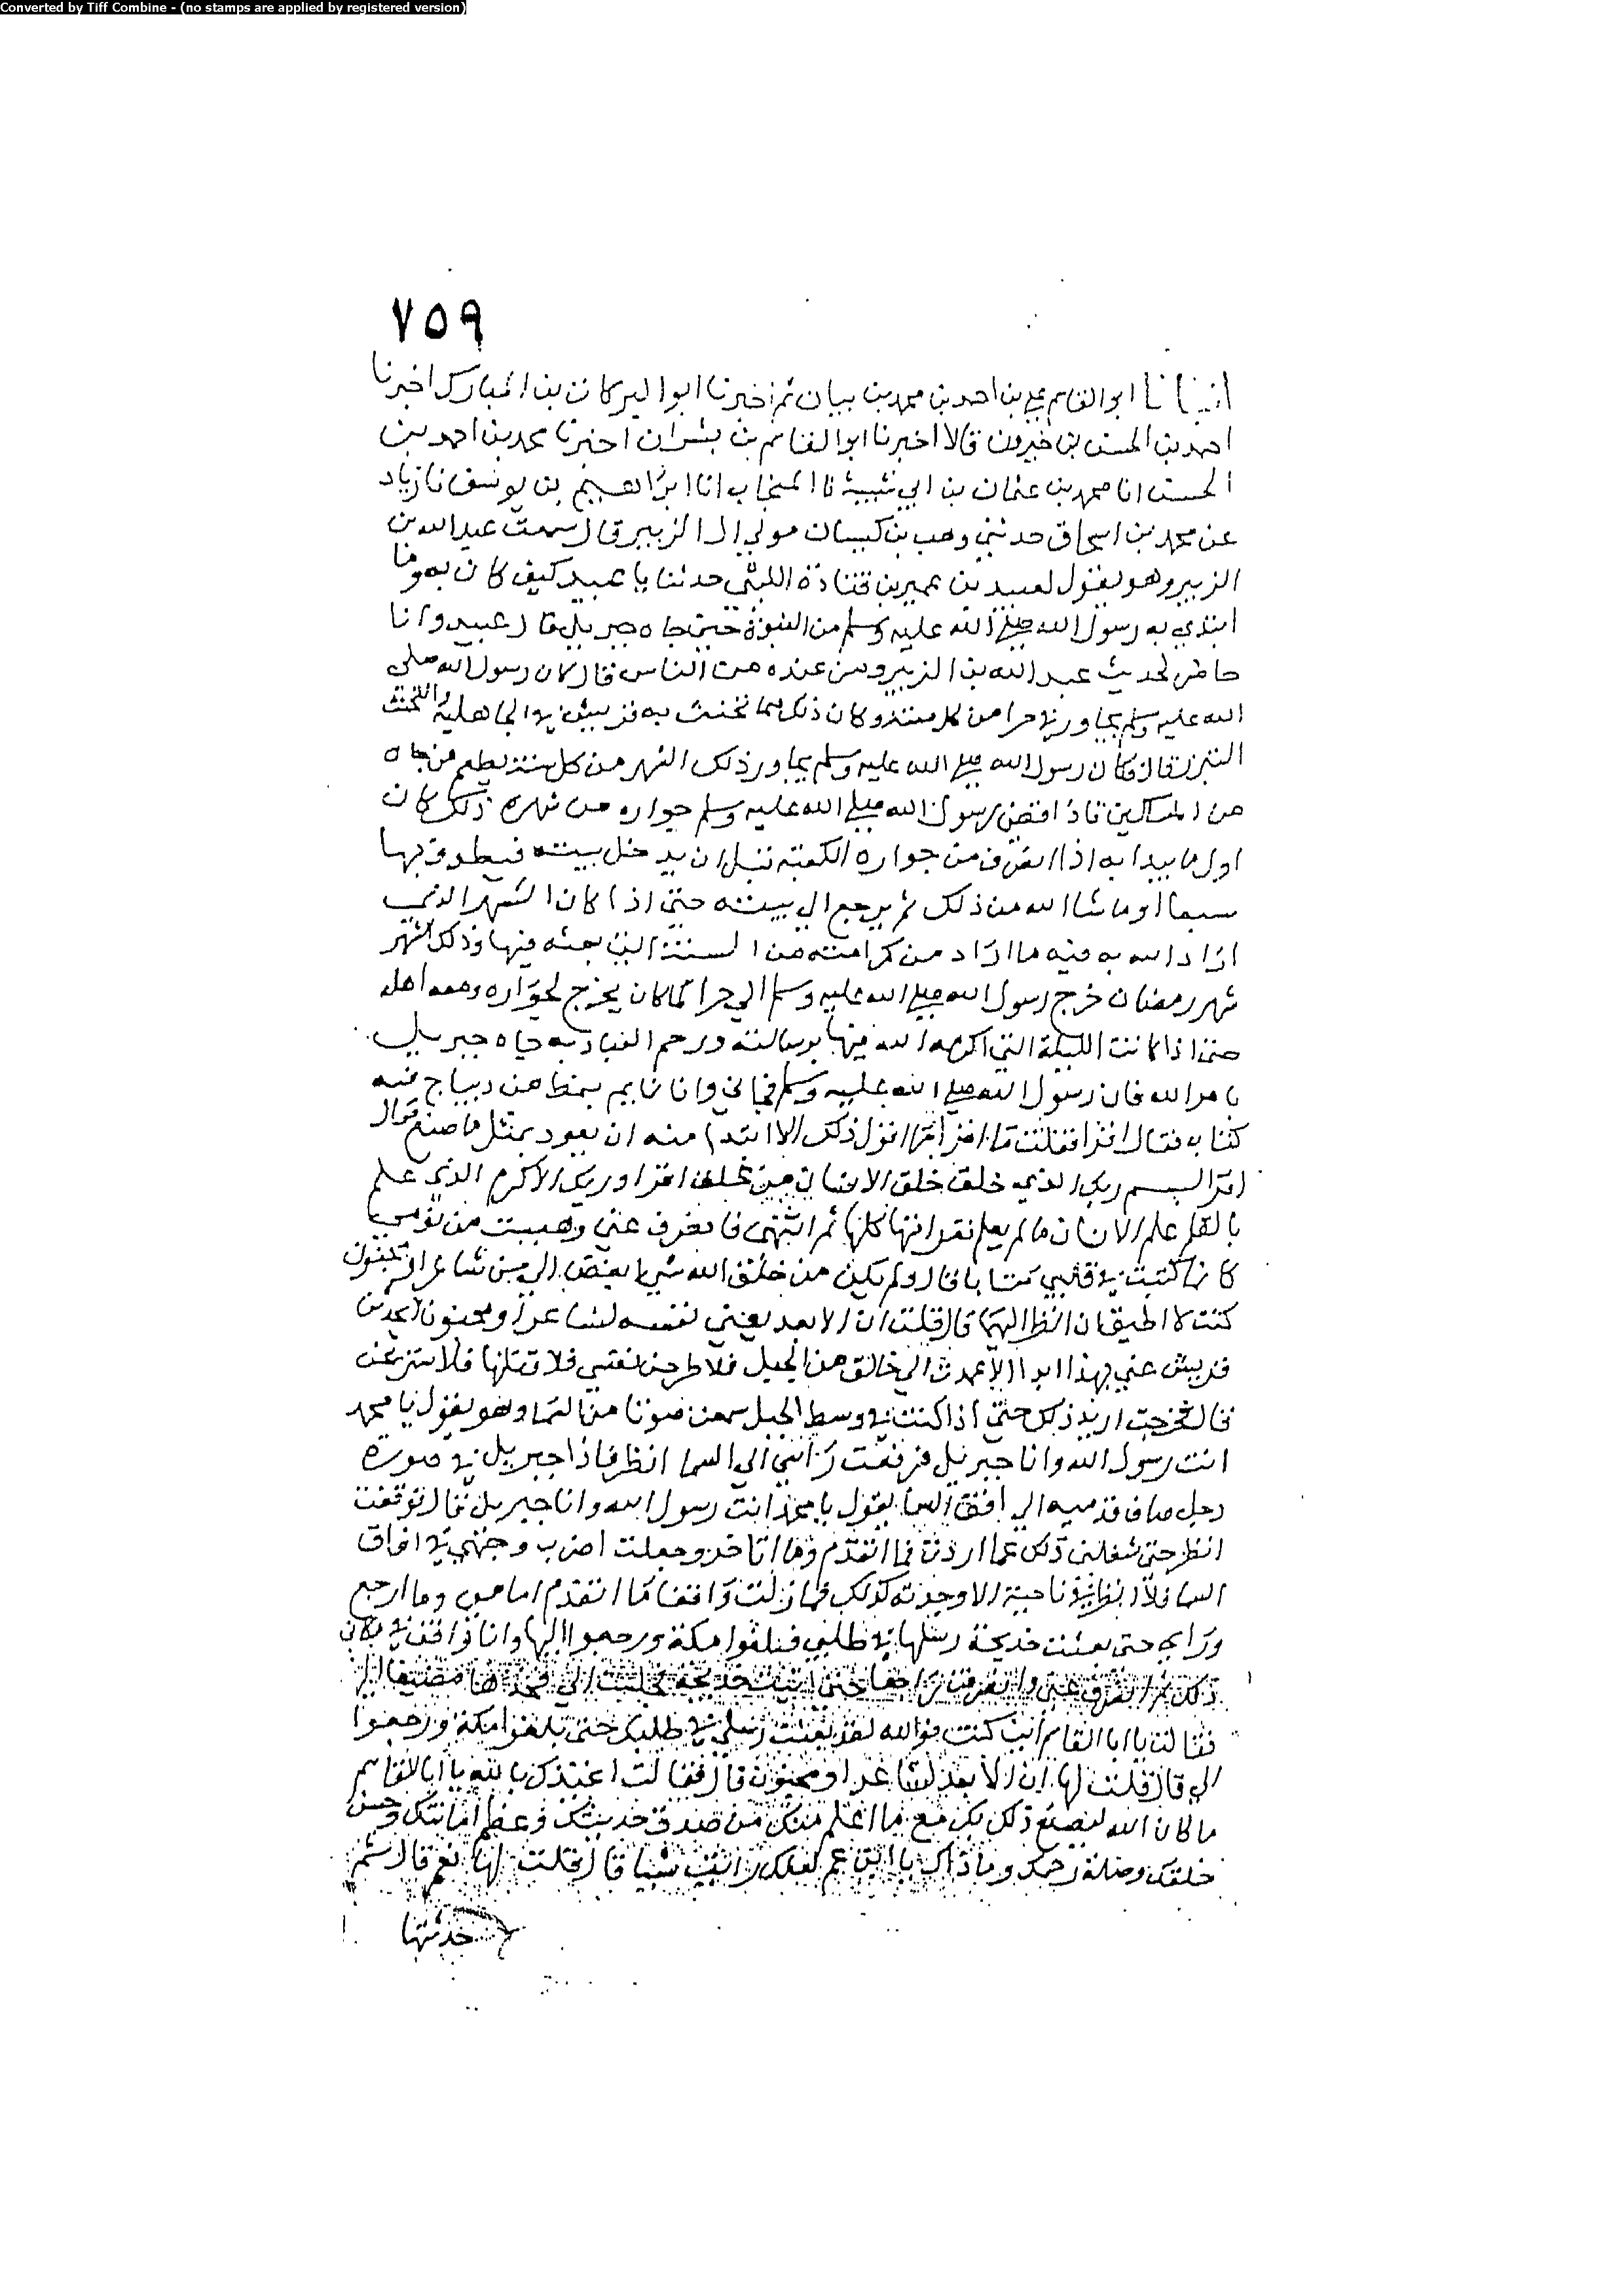 Converted by Tiff Combine - (no stamps are applied by registered version)
٧٥٩
انبانا ابو القاسم علي بن احمد بن محمد بن بيان ثم اخبرنا ابو البركات بن المبارك اخبرنا
احمد بن الحسن بن خيرون قالا اخبرنا ابو القاسم بن بشران اخبرنا محمد بن احمد بن
الحسن انا محمد بن عثمان بن ابي شيبة نا المنجاب انا ابراهيم بن يوسف نا زياد
عن محمد بن اسحاق حدثني وهب بن كيسان مولي ال الزبير قال سمعت عبد الله بن
الزبير وهو يقول لعبيد بن عمير بن قتادة الليثي حدثنا يا عبيد كيف كان بدو ما
ابتدي به رسول الله صلي الله عليه وسلم من النبوة حين جاه جبريل قال عبيد وانا
حاضر لحديث عبد الله بن الزبير ومن عنده من الناس قال كان رسول الله صلي
الله عليه وسلم يجاور في حرا من كل سنة وكان ذلك مما تحنث به قريش في الجاهلية والتحنث
التبرز قال فكان رسول الله صلي الله عليه وسلم يجاور ذلك الشهر من كل سنة يطعم من جاه
من المساكين فاذا قضى رسول الله صلي الله عليه وسلم جواره من شهره ذلك كان
اول ما يبدا به اذا انصرف من جواره الكعبة قبل ان يدخل بيته فيطوف بها
سبعا او ما شا الله من ذلك ثم يرجع الي بيته حتى اذا كان الشهر الذي
اراد الله به فيه ما اراد من كرامته من السنة التي بعثه فيها وذلك الشهر
شهر رمضان خرج رسول الله صلي الله عليه وسلم الي حرا كما كان يخرج لجواره ومعه اهله
حتى اذا كانت الليلة التي اكرمه الله فيها برسالته ورحم العباد به جاه جبريل
بامر الله فقال رسول الله صلي الله عليه وسلم فجاني وانا نايم بنمط من ديباج فيه
كتاب فقال اقرا فقلت ما اقرا اقول ذلك الا افتدا منه ان يعود بمثل ما صنع قال
اقرا بسم ربك الذي خلق خلق الانسان من علق اقرا وربك الاكرم الذي علم
بالقلم علم الانسان ما لم يعلم فقراتها كلها ثم انتهى فانصرف عني وهببت من نومي
كانما كتبت في قلبي كتابا قال ولم يكن من خلق الله شي ابغض الي من شاعر او مجنون
كنت لا اطيق ان انظر اليهما قال قلت ان الابعد يعني نفسه لشاعر او مجنون لا تحدث
قريش عني بهذا ابدا لاعمدن الي حالق من الجبل فلاطرحن نفسي فلاقتلنها فلاستريحن
قال فخرجت اريد ذلك حتى اذا كنت في وسط الجبل سمعت صوتا من السما وهو يقول يا محمد
انت رسول الله وانا جبريل فرفعت راسي الي السما انظر فاذا جبريل في صورة
رجل صاف قدميه الي افق السما يقول يا محمد انت رسول الله وانا جبريل قال فوقفت
انظر حتى شغلني ذلك عما اردت فما اتقدم وما اتاخر وجعلت اضرب وجهي في افاق
السما فلا انظر في ناحية الا وجدته كذلك فما زلت واقفا ما اتقدم امامي وما ارجع
وراي حتى بعثت خديجة رسلها في طلبي فبلغوا مكة ورجعوا اليها وانا واقف في مكاني
ذلك ثم انصرف عني وانصرفت راجعا حتى اتيت خديجة فجلست الي فخذها مضيفا اليها
فقالت يا ابا القاسم اين كنت فوالله لقد بعثت رسلي في طلبك حتى بلغوا مكة ورجعوا
الي قال قلت لها ان الابعد لشاعر او مجنون قال فقالت اعيذك بالله يا ابا القاسم
ما كان الله ليصنع ذلك بك مع ما اعلم منك من صدق حديثك وعظم امانتك وحسن
خلقك وصلة رحمك وما ذاك يا ابن عم لعلك رايت شيا قال قلت لها نعم قال ثم
حدثتها